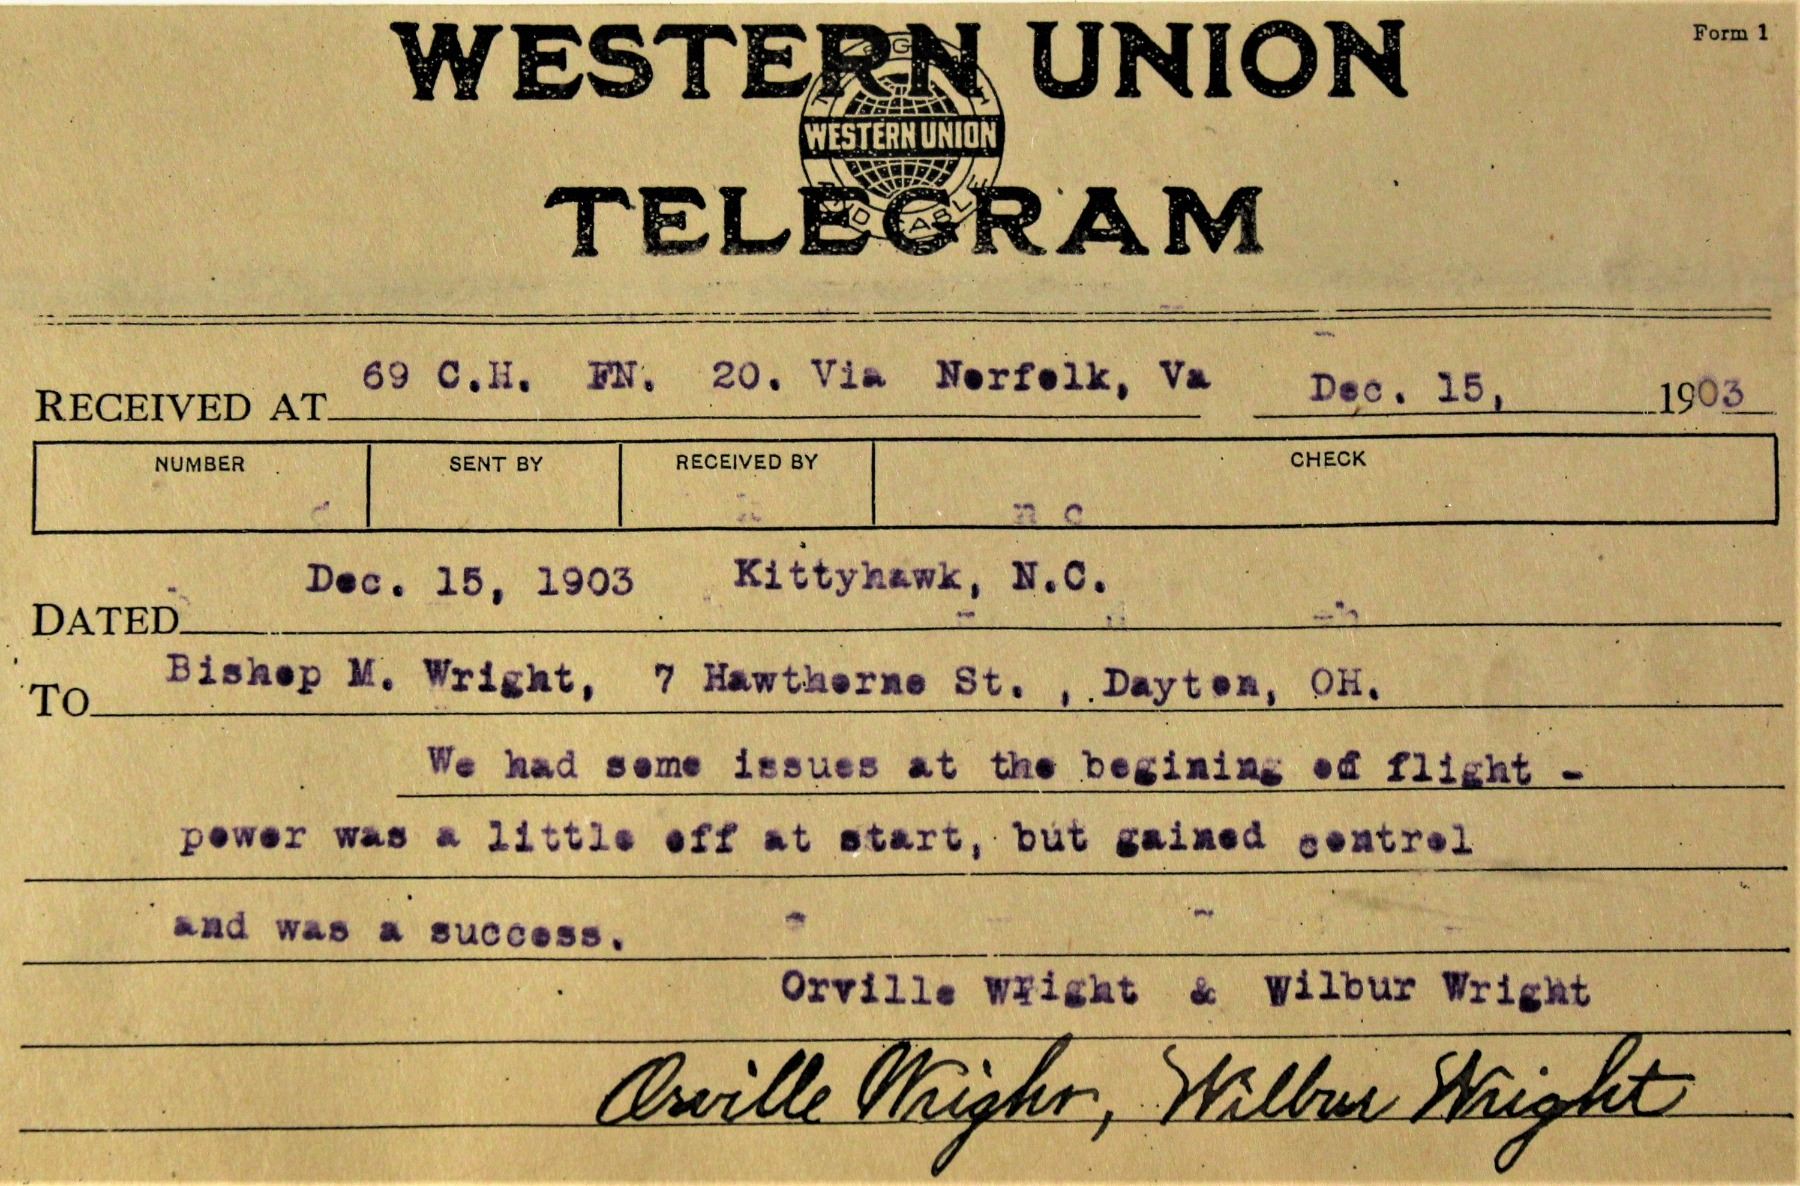 Form 1
WESTERN UNION
WESTERN UNION
TELEGRAM
RECEIVED AT 69 C.H. FN. 20. Via Norfolk, Va Dec. 15, 1903
NUMBER SENT BY RECEIVED BY CHECK
n c
DATED Dec. 15, 1903 Kittyhawk, N.C.
TO Bishop M. Wright, 7 Hawthorne St. , Dayton, OH.
We had some issues at the begining of flight -
power was a little off at start, but gained control
and was a success.
Orville Wright & Wilbur Wright
Orville Wright, Wilbur Wright